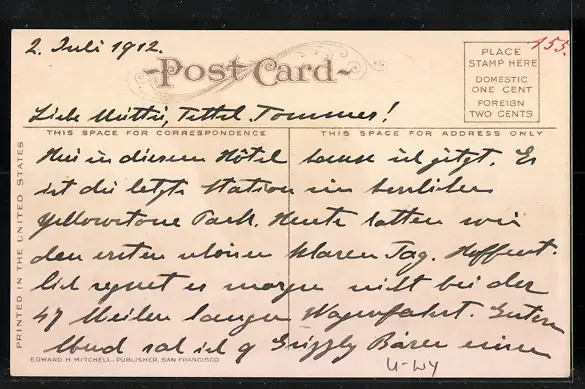 2. Juli 1912.
155.
Post Card
PLACE
STAMP HERE
DOMESTIC
ONE CENT
FOREIGN
TWO CENTS
Liebe Mutti, Tettel, Tommes!
THIS SPACE FOR CORRESPONDENCE
THIS SPACE FOR ADDRESS ONLY
Hier in diesem Hôtel hause ich jetzt. Es
ist die letzte Station im herrlichen
Yellowstone Park. Heute hatten wir
den ersten klaren Tag. Hoffent-
lich regnet es morgen nicht bei der
47 Meilen langen Wagenfahrt. Gestern
Abend sah ich 9 Grizzly Bären einen
PRINTED IN THE UNITED STATES
EDWARD H. MITCHELL, PUBLISHER, SAN FRANCISCO
U-WY